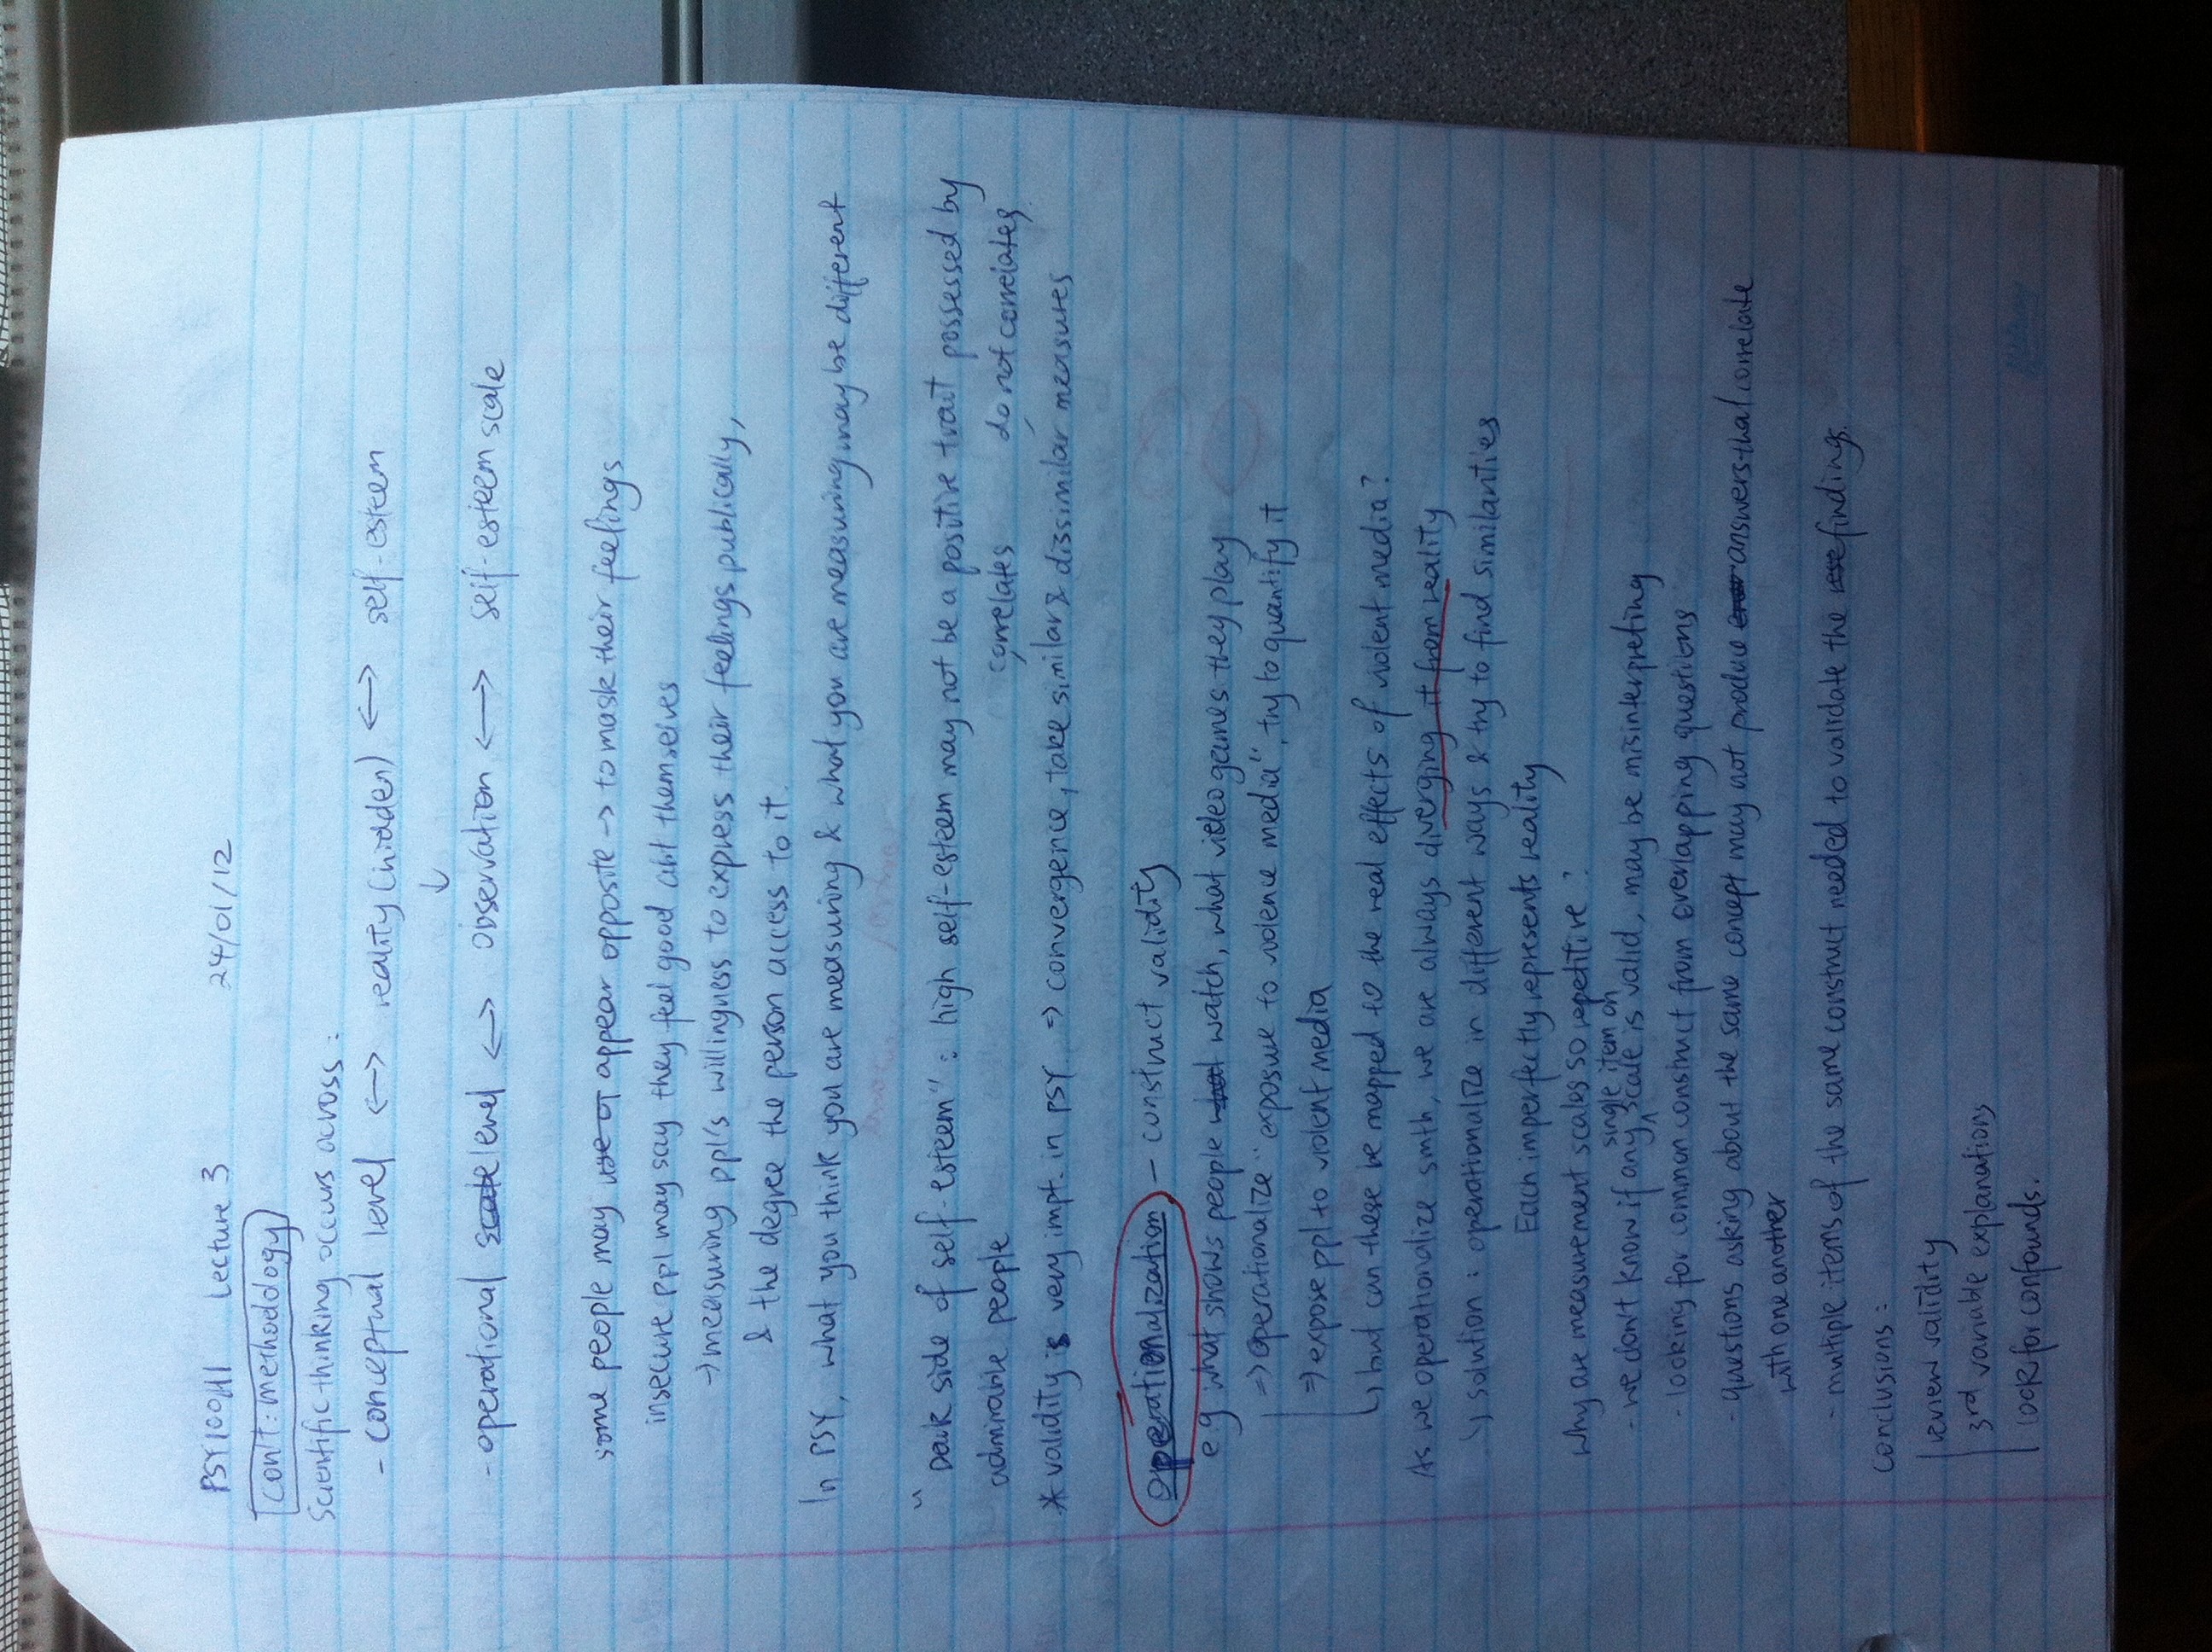 PSY100H1 Lecture 3 24/01/12
con't: methodology
Scientific thinking occurs across:
- conceptual level <-> reality (hidden) <-> self-esteem
↓
- operational level <-> observation <-> self-esteem scale
some people may appear opposite -> to mask their feelings
insecure ppl may say they feel good abt themselves
-> measuring ppl's willingness to express their feelings publically,
& the degree the person access to it.
In PSY, what you think you are measuring & what you are measuring may be different
"Dark side of self-esteem": high self-esteem may not be a positive trait possessed by
admirable people
correlates do not correlates
* validity is very impt. in PSY => convergence, take similar & dissimilar measures
Operationalization - construct validity
e.g what shows people watch, what video games they play
=> operationalize "exposure to violence media", try to quantify it
=> expose ppl to violent media
↳ but can these be mapped to the real effects of violent media?
As we operationalize smth, we are always diverging it from reality
↳ solution: operationalize in different ways & try to find similarities
Each imperfectly represents reality
Why are measurement scales so repetitive?
single item on
- we don't know if any ^ scale is valid, may be misinterpreting
- looking for common construct from overlapping questions
- questions asking about the same concept may not produce answers that correlate
with one another
- multiple items of the same construct needed to validate the findings.
conclusions:
review validity
3rd variable explanations
look for confounds.